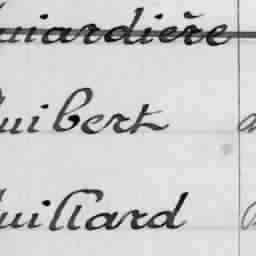 uiardière
uibert
uillard